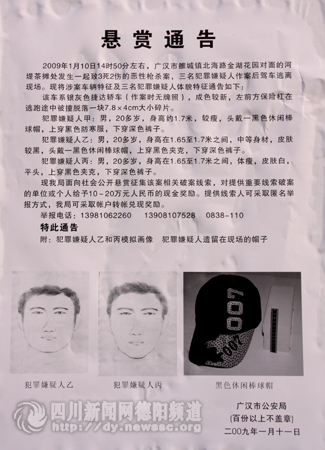 悬赏通告
2009年1月10日14时50分左右，广汉市雒城镇北海路金湖花园对面的河
堤茶摊处发生一起致3死2伤的恶性枪杀案，三名犯罪嫌疑人作案后驾车逃离
现场。现将涉案车辆特征及三名犯罪嫌疑人体貌特征通告如下：
该车系银灰色捷达轿车（作案时无牌照），成色较新，左前方保险杠在
逃跑途中被撞脱落一块7.8×4cm大小碎片。
犯罪嫌疑人甲：男，20多岁，身高约1.7米，较瘦，头戴一黑色休闲棒
球帽，上穿黑色防寒服，下穿深色裤子。
犯罪嫌疑人乙：男，20多岁，身高在1.65至1.7米之间，中等身材，皮肤
较黑，头戴一黑色休闲棒球帽，上穿黑色夹克，下穿深色裤子。
犯罪嫌疑人丙：男，20多岁，身高在1.65至1.7米之间，体瘦，皮肤白，
平头，上穿黑色夹克，下穿深色裤子。
现我局向社会公开悬赏征集该案相关破案线索，对提供重要线索破案
的单位或个人给予10-20万元人民币的现金奖励。提供线索人可采取匿名举
报方式，我局可采取帐户转帐兑现奖励。
举报电话：13981062260 13908107528 0838-110
特此通告
附：犯罪嫌疑人乙和丙模拟画像 犯罪嫌疑人遗留在现场的帽子
007
007
犯罪嫌疑人乙 犯罪嫌疑人丙 黑色休闲棒球帽
四川新闻网德阳频道
http://dy.newssc.org
广汉市公安局
（百份以上不盖章）
二00九年一月十一日